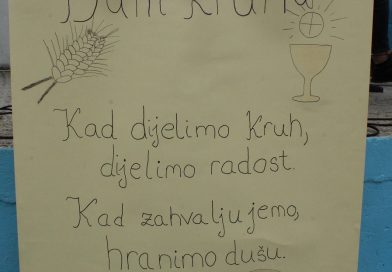 Dani kruha
Kad dijelimo kruh,
dijelimo radost.
Kad zahvaljujemo,
hranimo dušu.